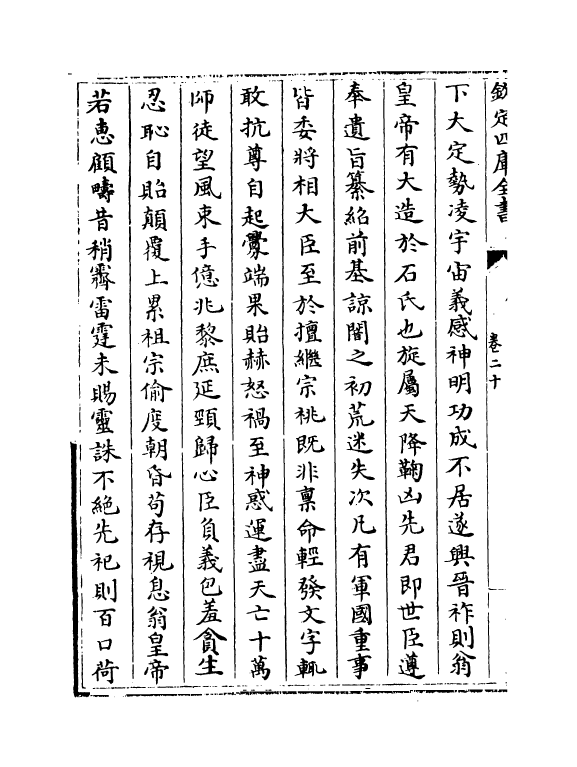 欽定四庫全書
卷二十
下大定勢凌宇宙義感神明功成不居遂興晉祚則翁
皇帝有大造於石氏也旋屬天降鞠凶先君即世臣遵
奉遺旨纂紹前基諒闇之初荒迷失次凡有軍國重事
皆委將相大臣至於擅繼宗祧既非禀命輕發文字輒
敢抗尊自起釁端果貽赫怒禍至神惑運盡天亡十萬
師徒望風束手億兆黎庶延頸歸心臣負義包羞貪生
忍恥自貽顛覆上累祖宗偷度朝昏苟存視息翁皇帝
若惠顧疇昔稍霽雷霆未賜靈誅不絕先祀則百口荷